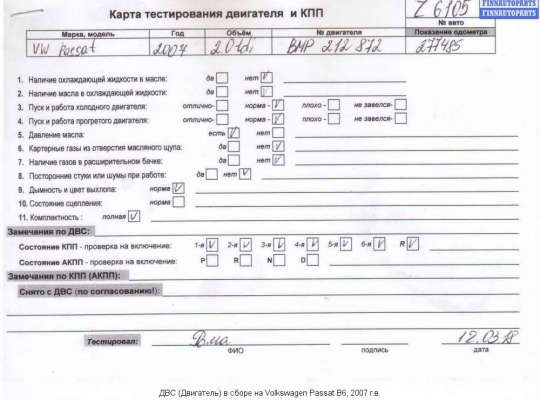 FINNAUTOPARTS
FINNAUTOPARTS
Карта тестирования двигателя и КПП
Z 6105
№ авто
Марка, модель Год Объём № двигателя Показание одометра
VW Passat 2007 2.0 tdi BMP 212 872 277485
1. Наличие охлаждающей жидкости в масле: да нет V
2. Наличие масла в охлаждающей жидкости: да нет V
3. Пуск и работа холодного двигателя: отлично- норма - V плохо - не завелся-
4. Пуск и работа прогретого двигателя: отлично- норма - V плохо - не завелся-
5. Давление масла: есть V нет
6. Картерные газы из отверстия масляного щупа: да нет V
7. Наличие газов в расширительном бачке: да нет V
8. Посторонние стуки или шумы при работе: да нет V
9. Дымность и цвет выхлопа: норма V
10. Состояние сцепления: норма
11. Комплектность : полная V
Замечания по ДВС:
Состояние КПП - проверка на включение: 1-я V 2-я V 3-я V 4-я V 5-я V 6-я V R V
Состояние АКПП - проверка на включение: P R N D
Замечания по КПП (АКПП):
Снято с ДВС (по согласованию!):
Тестировал: 12.03.18
ФИО подпись дата
ДВС (Двигатель) в сборе на Volkswagen Passat B6, 2007 г.в.